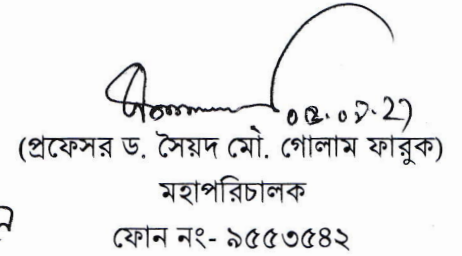 (প্রফেসর ড. সৈয়দ মো. গোলাম ফারুক)
মহাপরিচালক
ফোন নং- ৯৫৫৩৫৪২